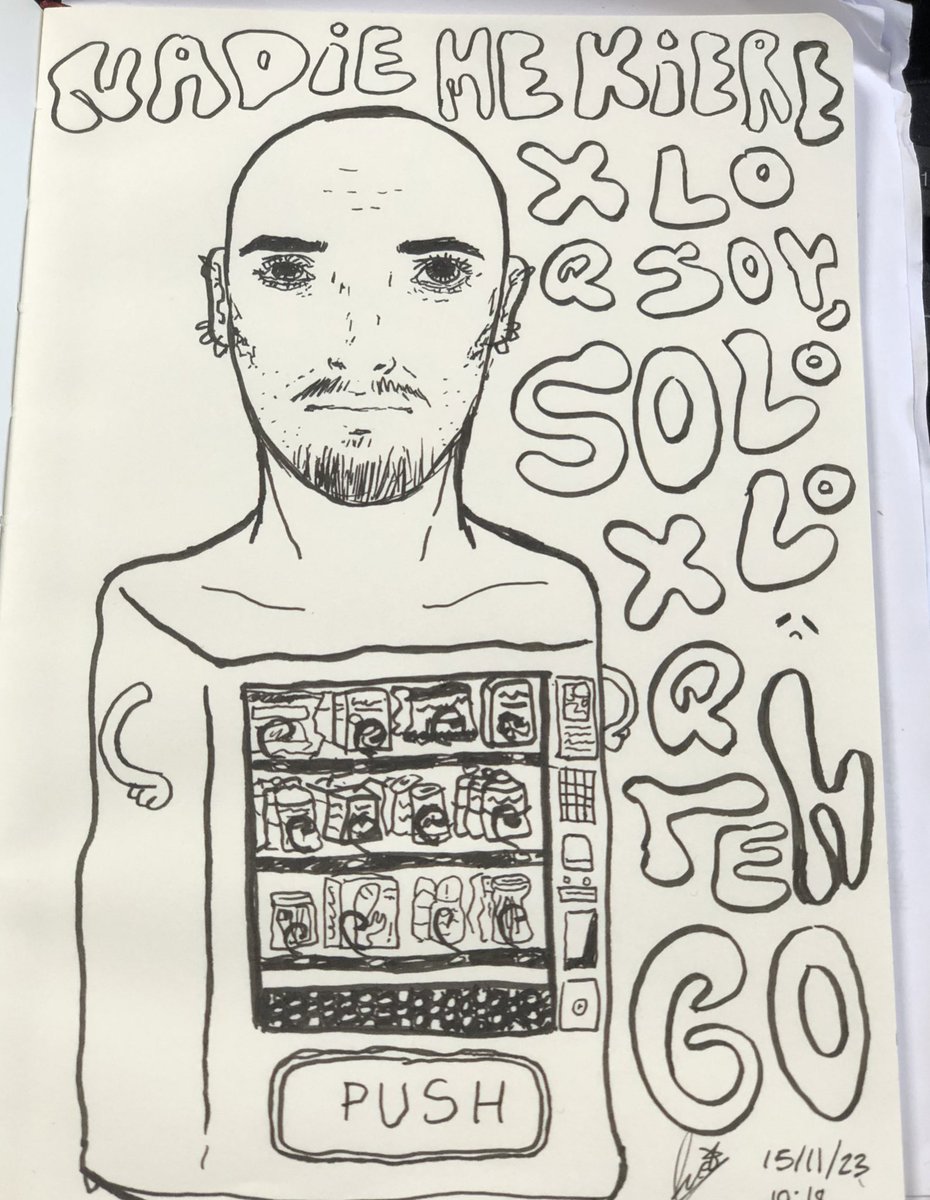 NADiE ME KiERE
X LO
Q SOY,
SOLO
X LO
Q
TEN
GO
PUSH
15/11/23